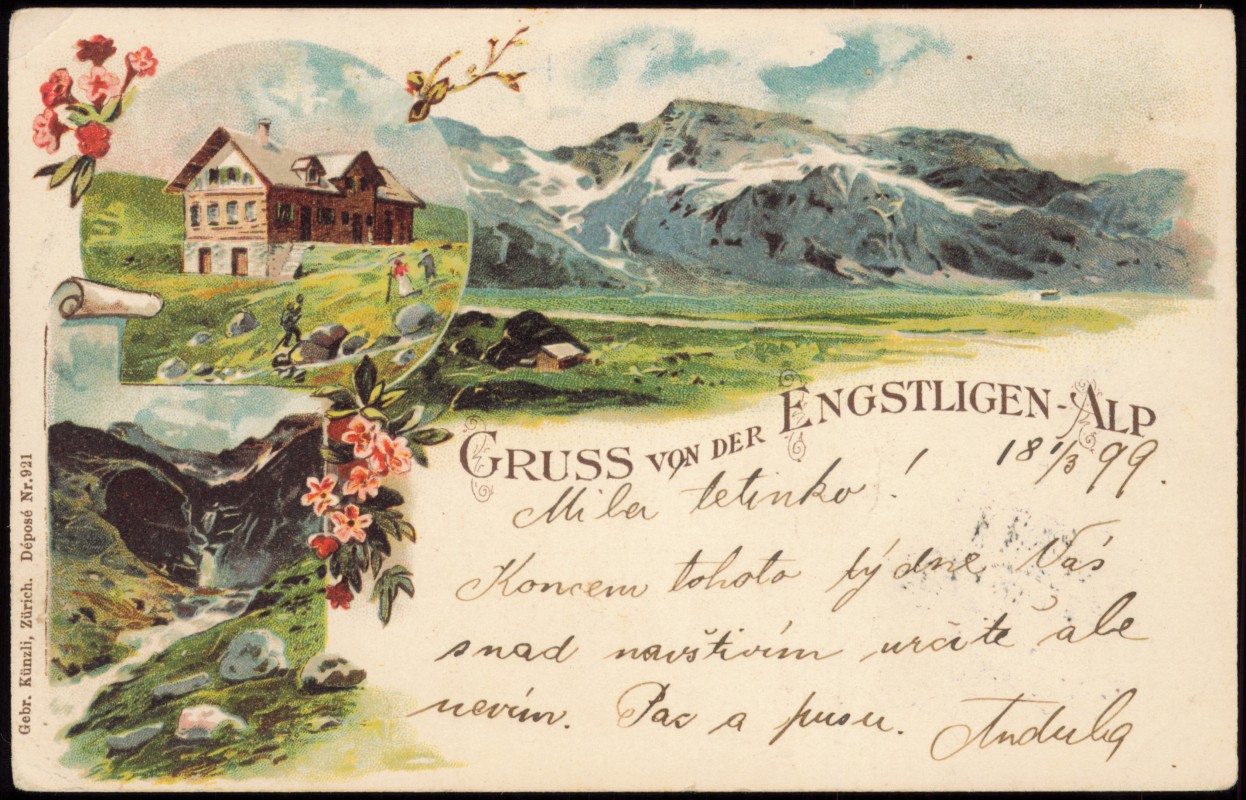 GRUSS VON DER ENGSTLIGEN-ALP
18 1/3 99.
Milá tetinko!
Koncem tohoto týdne Vás
snad navštívím určitě ale
nevím. Pac a pusu. Andulka
Gebr. Künzli, Zürich. Déposé Nr. 921